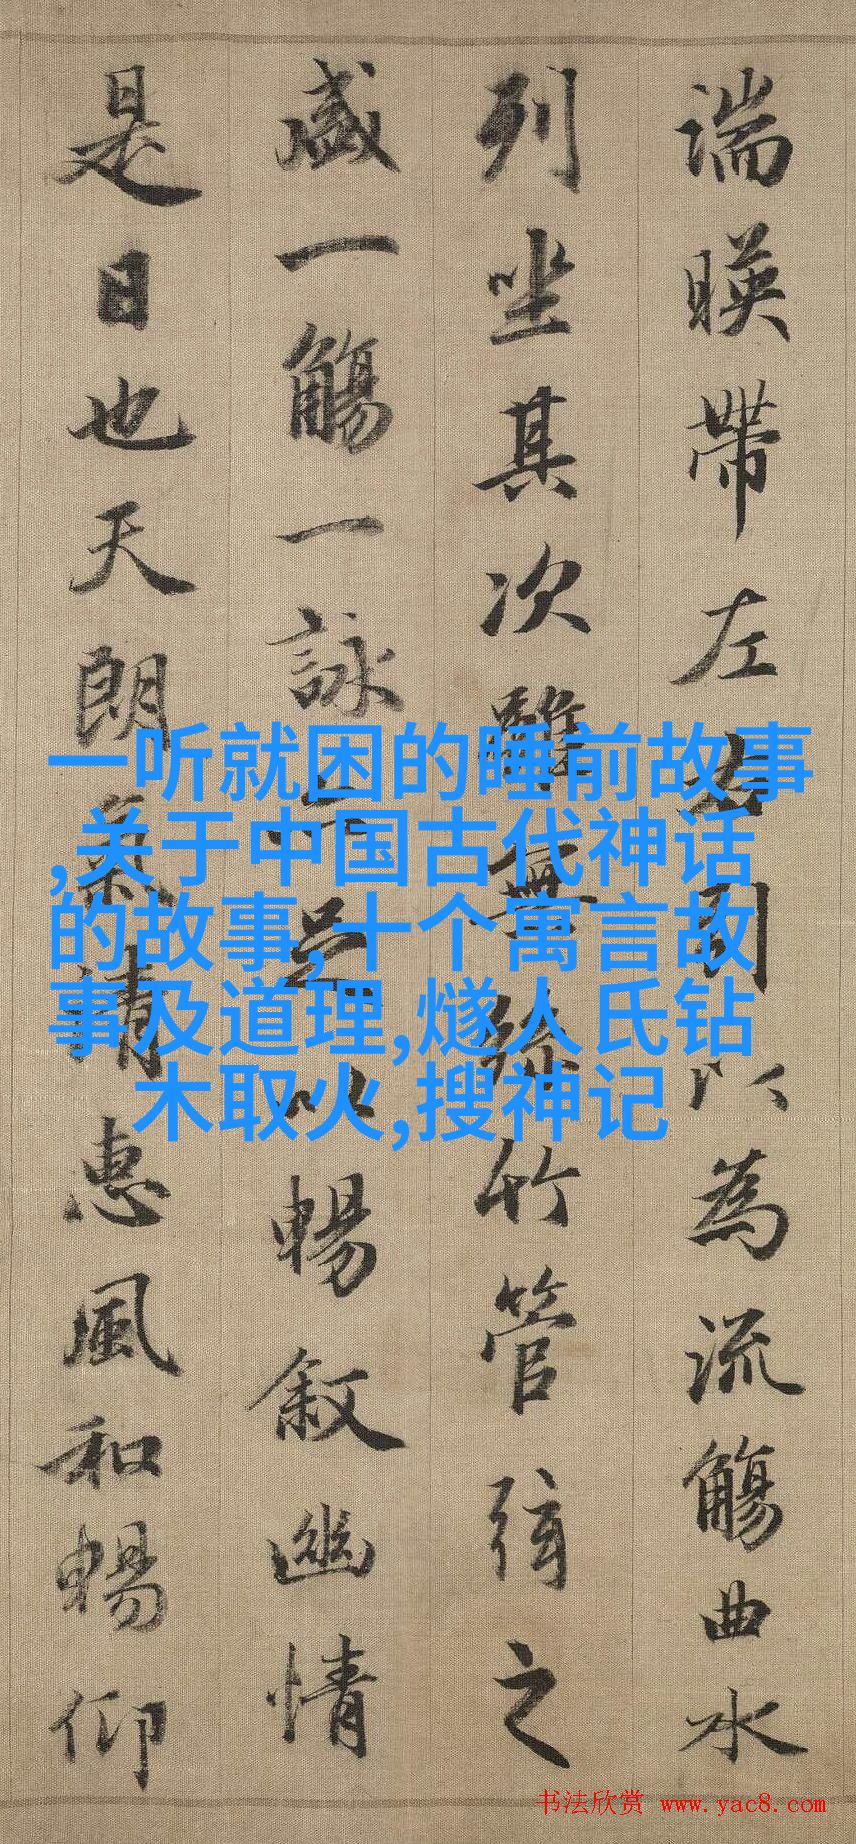 湍暎帶左右引以為流觴曲水
列坐其次雖無絲竹管弦之
盛一觴一詠亦足以暢叙幽情
是日也天朗氣清惠風和暢仰
一听就困的睡前故事
,关于中国古代神话
的故事,十个寓言故
事及道理,燧人氏钻
木取火,搜神记
书法欣赏 www.yac8.com